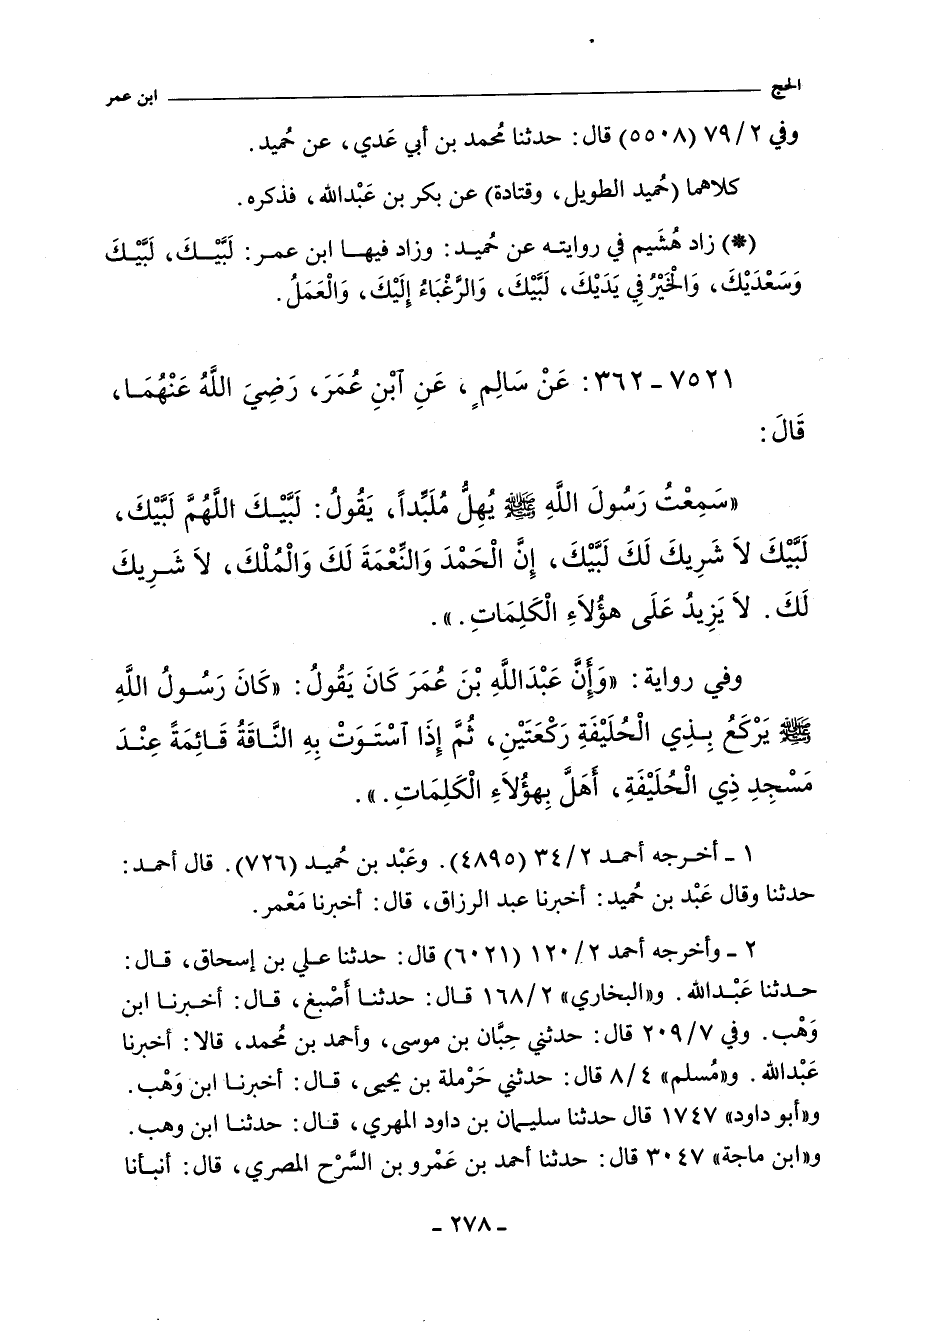 الحج ابن عمر
وفي ٢/ ٧٩ (٥٥٠٨) قال: حدثنا مُحمد بن أبي عَدي، عن حُميد.
كلاهما (حُميد الطويل، وقتادة) عن بكر بن عَبْدالله، فذكره.
(*) زاد هُشَيم في روايته عن حُميد: وزاد فيها ابن عمر: لَبَّيْكَ، لَبَّيْكَ
وَسَعْدَيْكَ، وَالْخَيْرُ فِي يَدَيْكَ، لَبَّيْكَ، وَالرَّغْبَاءُ إِلَيْكَ، وَالْعَمَلُ.
٧٥٢١ - ٣٦٢: عَنْ سَالِمٍ، عَنِ ٱبْنِ عُمَرَ، رَضِيَ اللَّهُ عَنْهُمَا،
قَالَ:
«سَمِعْتُ رَسُولَ اللَّهِ ﷺ يُهِلُّ مُلَبِّداً، يَقُولُ: لَبَّيْكَ اللَّهُمَّ لَبَّيْكَ،
لَبَّيْكَ لاَ شَرِيكَ لَكَ لَبَّيْكَ، إِنَّ الْحَمْدَ وَالنِّعْمَةَ لَكَ وَالْمُلْكَ، لاَ شَرِيكَ
لَكَ. لاَ يَزِيدُ عَلَى هؤُلاَءِ الْكَلِمَاتِ.».
وفي رواية: «وَأَنَّ عَبْدَاللَّهِ بْنَ عُمَرَ كَانَ يَقُولُ: «كَانَ رَسُولُ اللَّهِ
ﷺ يَرْكَعُ بِذِي الْحُلَيْفَةِ رَكْعَتَيْنِ، ثُمَّ إِذَا ٱسْتَوَتْ بِهِ النَّاقَةُ قَائِمَةً عِنْدَ
مَسْجِدِ ذِي الْحُلَيْفَةِ، أَهَلَّ بِهؤُلاَءِ الْكَلِمَاتِ.».
١ - أخرجه أحمد ٢/ ٣٤ (٤٨٩٥). وعَبْد بن حُميد (٧٢٦). قال أحمد:
حدثنا وقال عَبْد بن حُميد: أخبرنا عبد الرزاق، قال: أخبرنا مَعْمر.
٢ - وأخرجه أحمد ٢/ ١٢٠ (٦٠٢١) قال: حدثنا علي بن إسحاق، قال:
حدثنا عَبْدالله. و«البخاري» ٢/ ١٦٨ قال: حدثنا أَصْبغ، قال: أخبرنا ابن
وَهْب. وفي ٧/ ٢٠٩ قال: حدثني حِبَّان بن موسى، وأحمد بن مُحمد، قالا: أخبرنا
عَبْدالله. و«مُسلم» ٤/ ٨ قال: حدثني حَرْملة بن يحيى، قال: أخبرنا ابن وَهْب.
و«أبو داود» ١٧٤٧ قال حدثنا سليمان بن داود المهري، قال: حدثنا ابن وهب.
و«ابن ماجة» ٣٠٤٧ قال: حدثنا أحمد بن عَمْرو بن السَّرْح المصري، قال: أنبأنا
- ٢٧٨ -